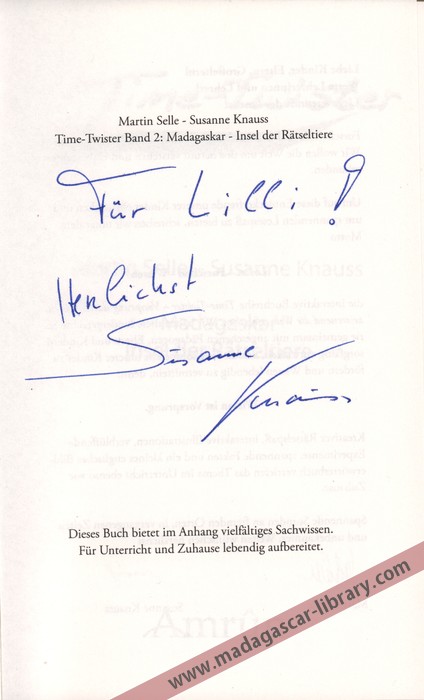 Martin Selle - Susanne Knauss
Time-Twister Band 2: Madagaskar - Insel der Rätseltiere
Für Lilli!
Herzlichst
Susanne
Knauss
Dieses Buch bietet im Anhang vielfältiges Sachwissen.
Für Unterricht und Zuhause lebendig aufbereitet.
www.madagascar-library.com